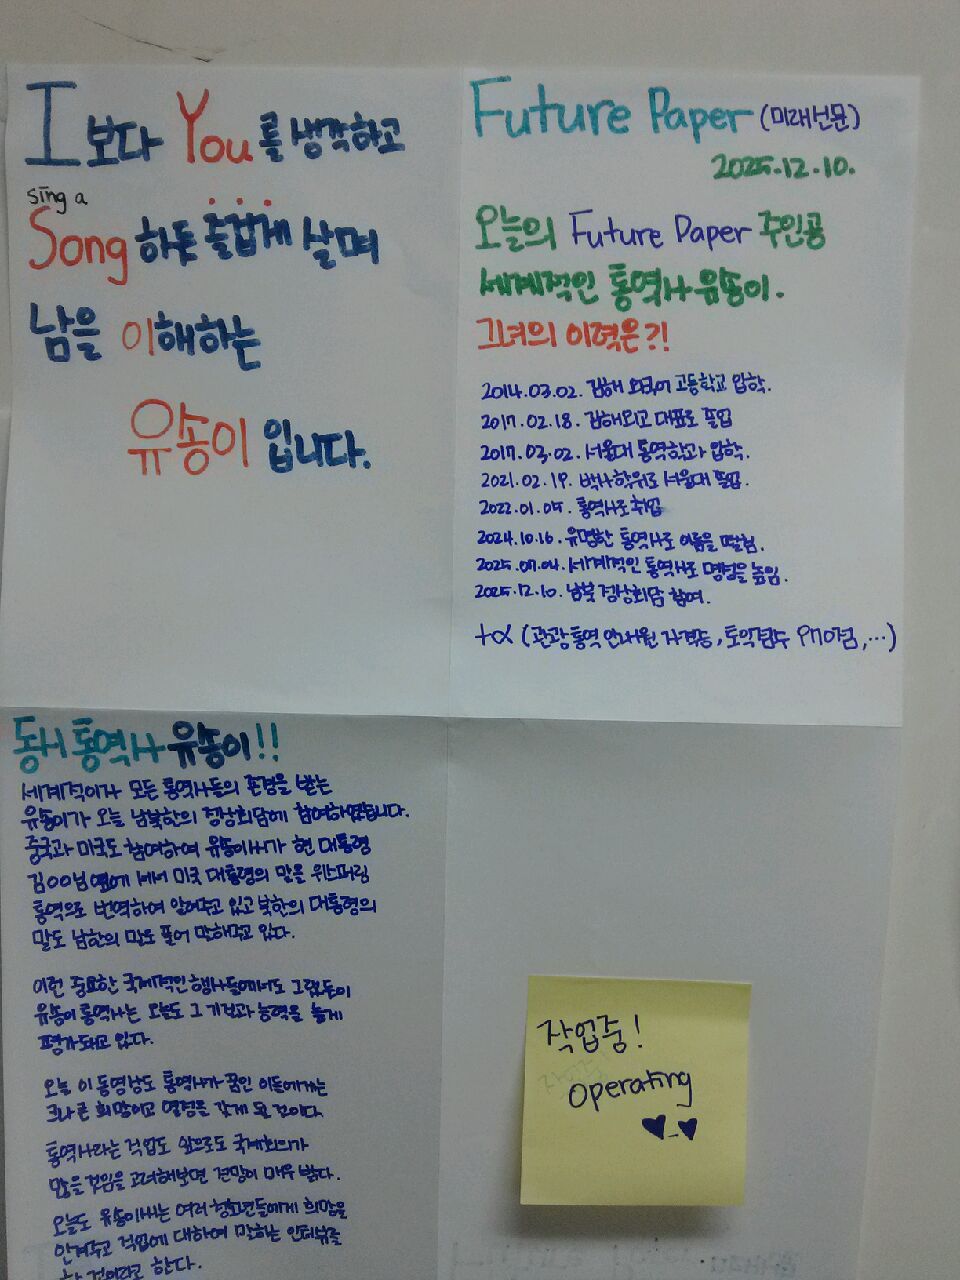 I 보다 You를 생각하고
sing a
Song 하듯 즐겁게 살며
남을 이해하는
유송이 입니다.
Future Paper (미래신문)
2025.12.10.
오늘의 Future Paper 주인공
세계적인 통역사 유송이.
그녀의 이력은?!
2014.03.02. 김해 외국어 고등학교 입학.
2017.02.18. 김해외고 대표로 졸업
2017.03.02. 서울대 통역학과 입학.
2021.02.19. 학사학위로 서울대 졸업.
2022.01.05. 통역사로 취업
2024.10.16. 유명한 통역사로 이름을 떨침.
2025.07.04. 세계적인 통역사로 명성을 높임.
2025.12.10. 남북 정상회담 참여.
+α (관광통역 안내원 자격증, 토익점수 970점, …)
동시통역사 유송이!!
세계적이자 모든 통역사들의 존경을 받는
유송이가 오늘 남북한의 정상회담에 참여하였습니다.
중국과 미국도 참여하여 유송이씨가 현 대통령
김OO님 옆에 서서 미국 대통령의 말을 위스퍼링
통역으로 번역하여 알려주고 있고 북한의 대통령의
말도 남한의 말로 풀어 말해주고 있다.
이런 중요한 국제적인 행사들에서도 그랬듯이
유송이 통역사는 오늘도 그 기량과 능력을 높게
평가되고 있다.
오늘 이 동영상도 통역사가 꿈인 이들에게는
크나큰 희망이고 열정을 갖게 될 것이다.
통역사라는 직업도 앞으로도 국제회의가
많을것임을 고려해보면 전망이 매우 밝다.
오늘도 유송이씨는 여러 청소년들에게 희망을
안겨주고 직업에 대하여 말하는 인터뷰를
할 것이라고 한다.
작업중!
operating